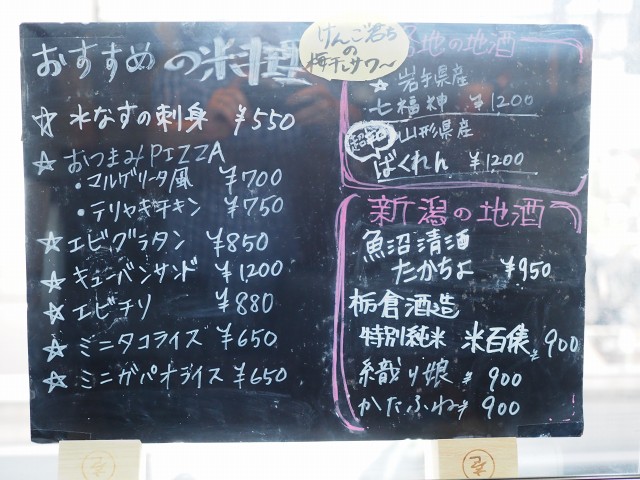 おすすめの料理
☆ 水なすの刺身 ¥550
☆ おつまみPIZZA
・マルゲリータ風 ¥700
・テリヤキチキン ¥750
☆ エビグラタン ¥850
☆ キューバンサンド ¥1200
☆ エビチリ ¥880
☆ ミニタコライス ¥650
☆ ミニガパオライス ¥650
けんこ岩ち
の
梅干しサワ〜
地の地酒
☆ 岩手県産
七福神 ¥1200
山形県産
ばくれん ¥1200
新潟の地酒
魚沼清酒
たかちよ ¥950
栃倉酒造
特別純米 米百俵 ¥900
織り娘 ¥900
かたふね ¥900